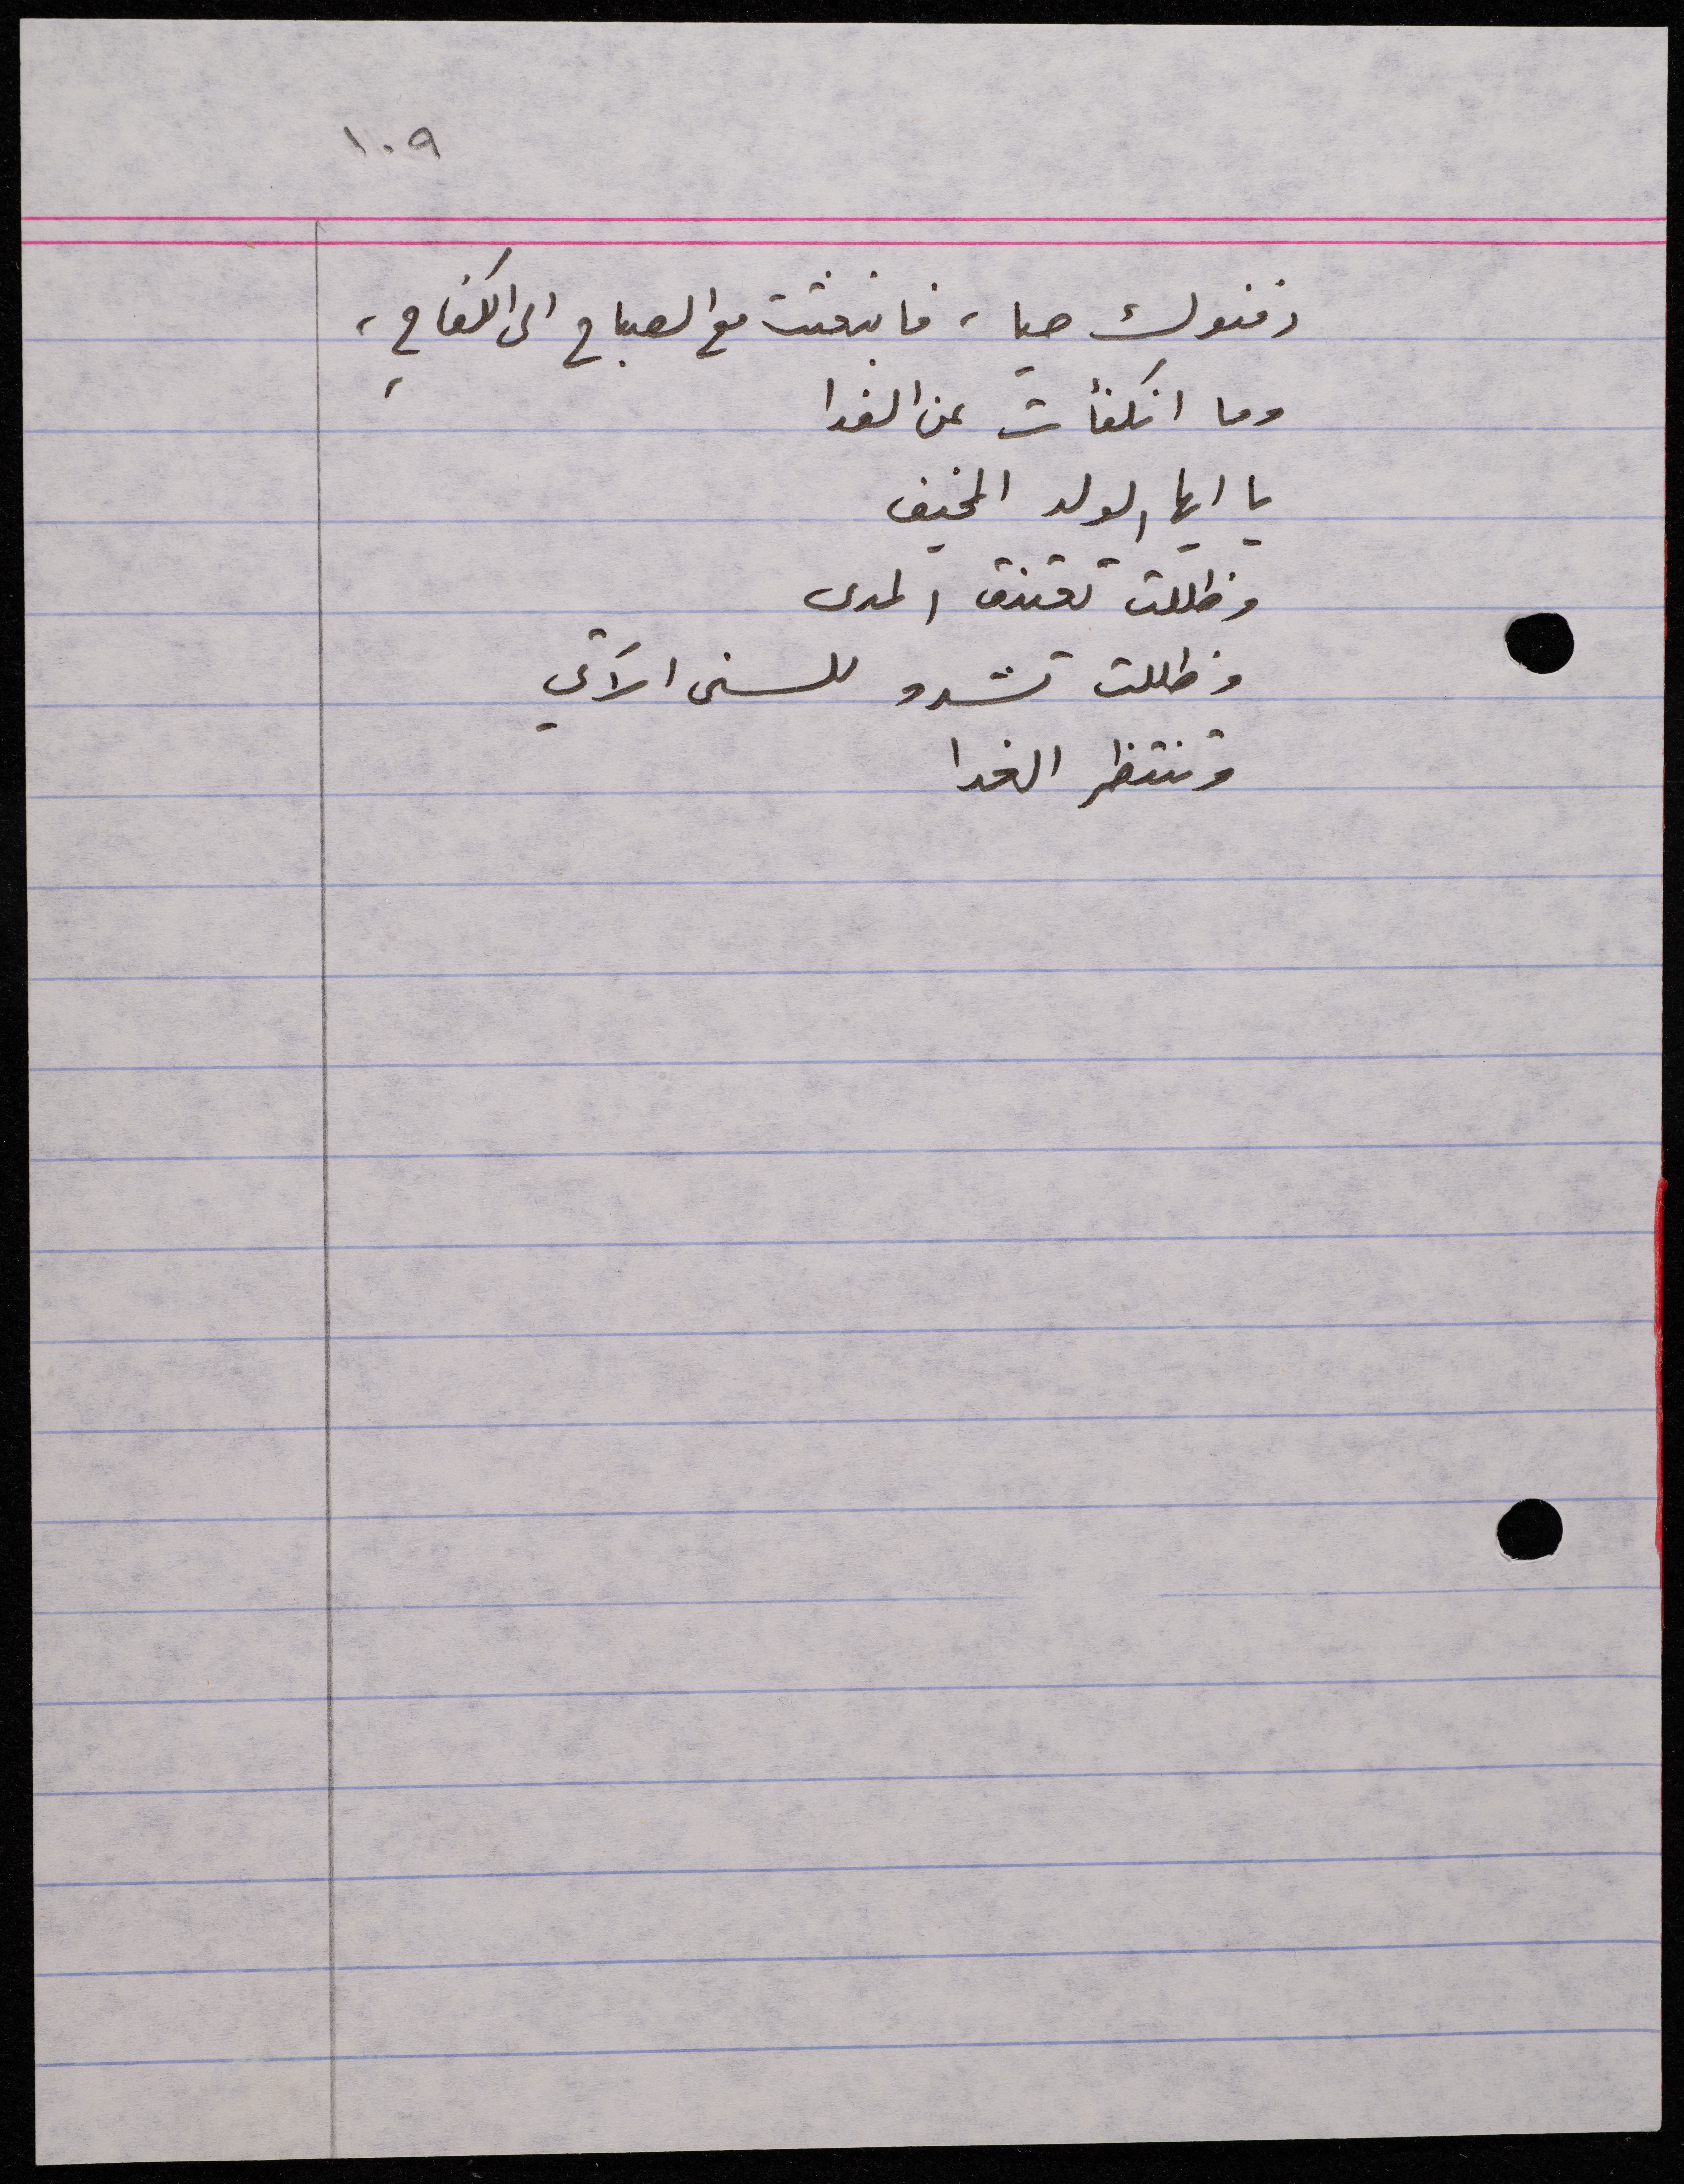 ١٠٩
دفنوك حيا، فانبعثت مع الصباح الى الكفاحِ،
وما انكفأت عن الفدا
يا ايها الولد المخيف
وظللت تعتنق المدى
وظللت تشدو للسنى الآتي
وتنتظر الغدا